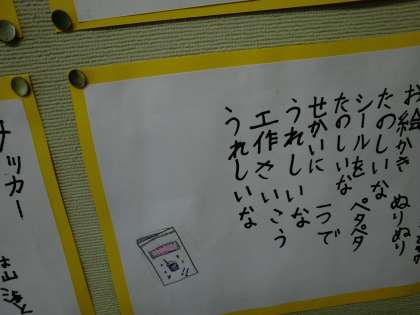 お絵かき ぬりぬり
たのしいな
シールを ペタペタ
たのしいな
せかいに 一つで
うれしいな
工作さいこう
うれしいな
サッカー